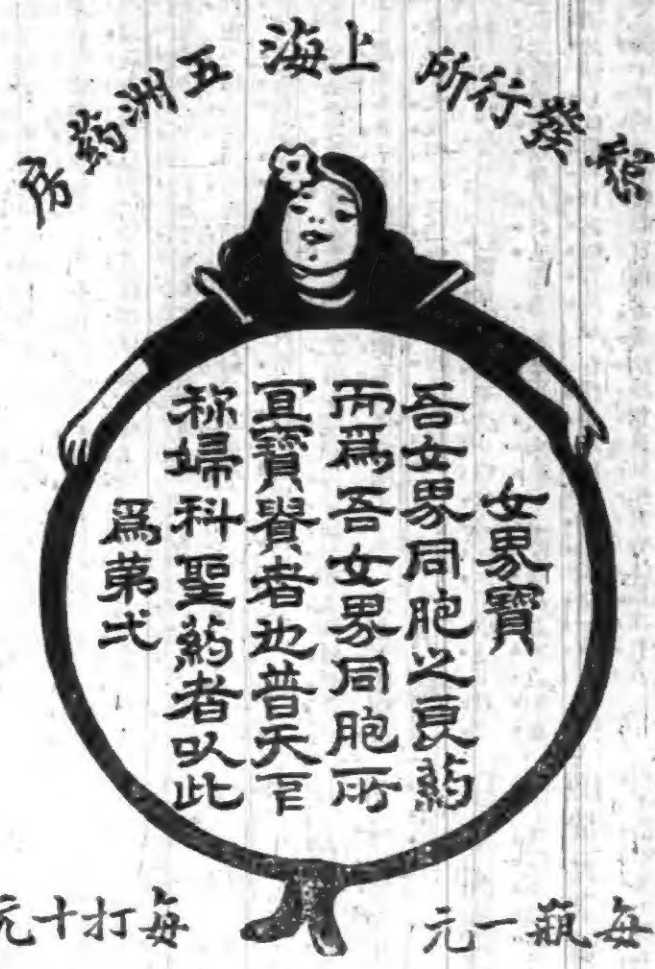 總發行所 上海 五洲葯房
女界寶
吾女界同胞之良葯
而爲吾女界同胞所
宜寶貴者也普天下
称婦科聖葯者以此
爲第弌
每瓶一元
每打十元